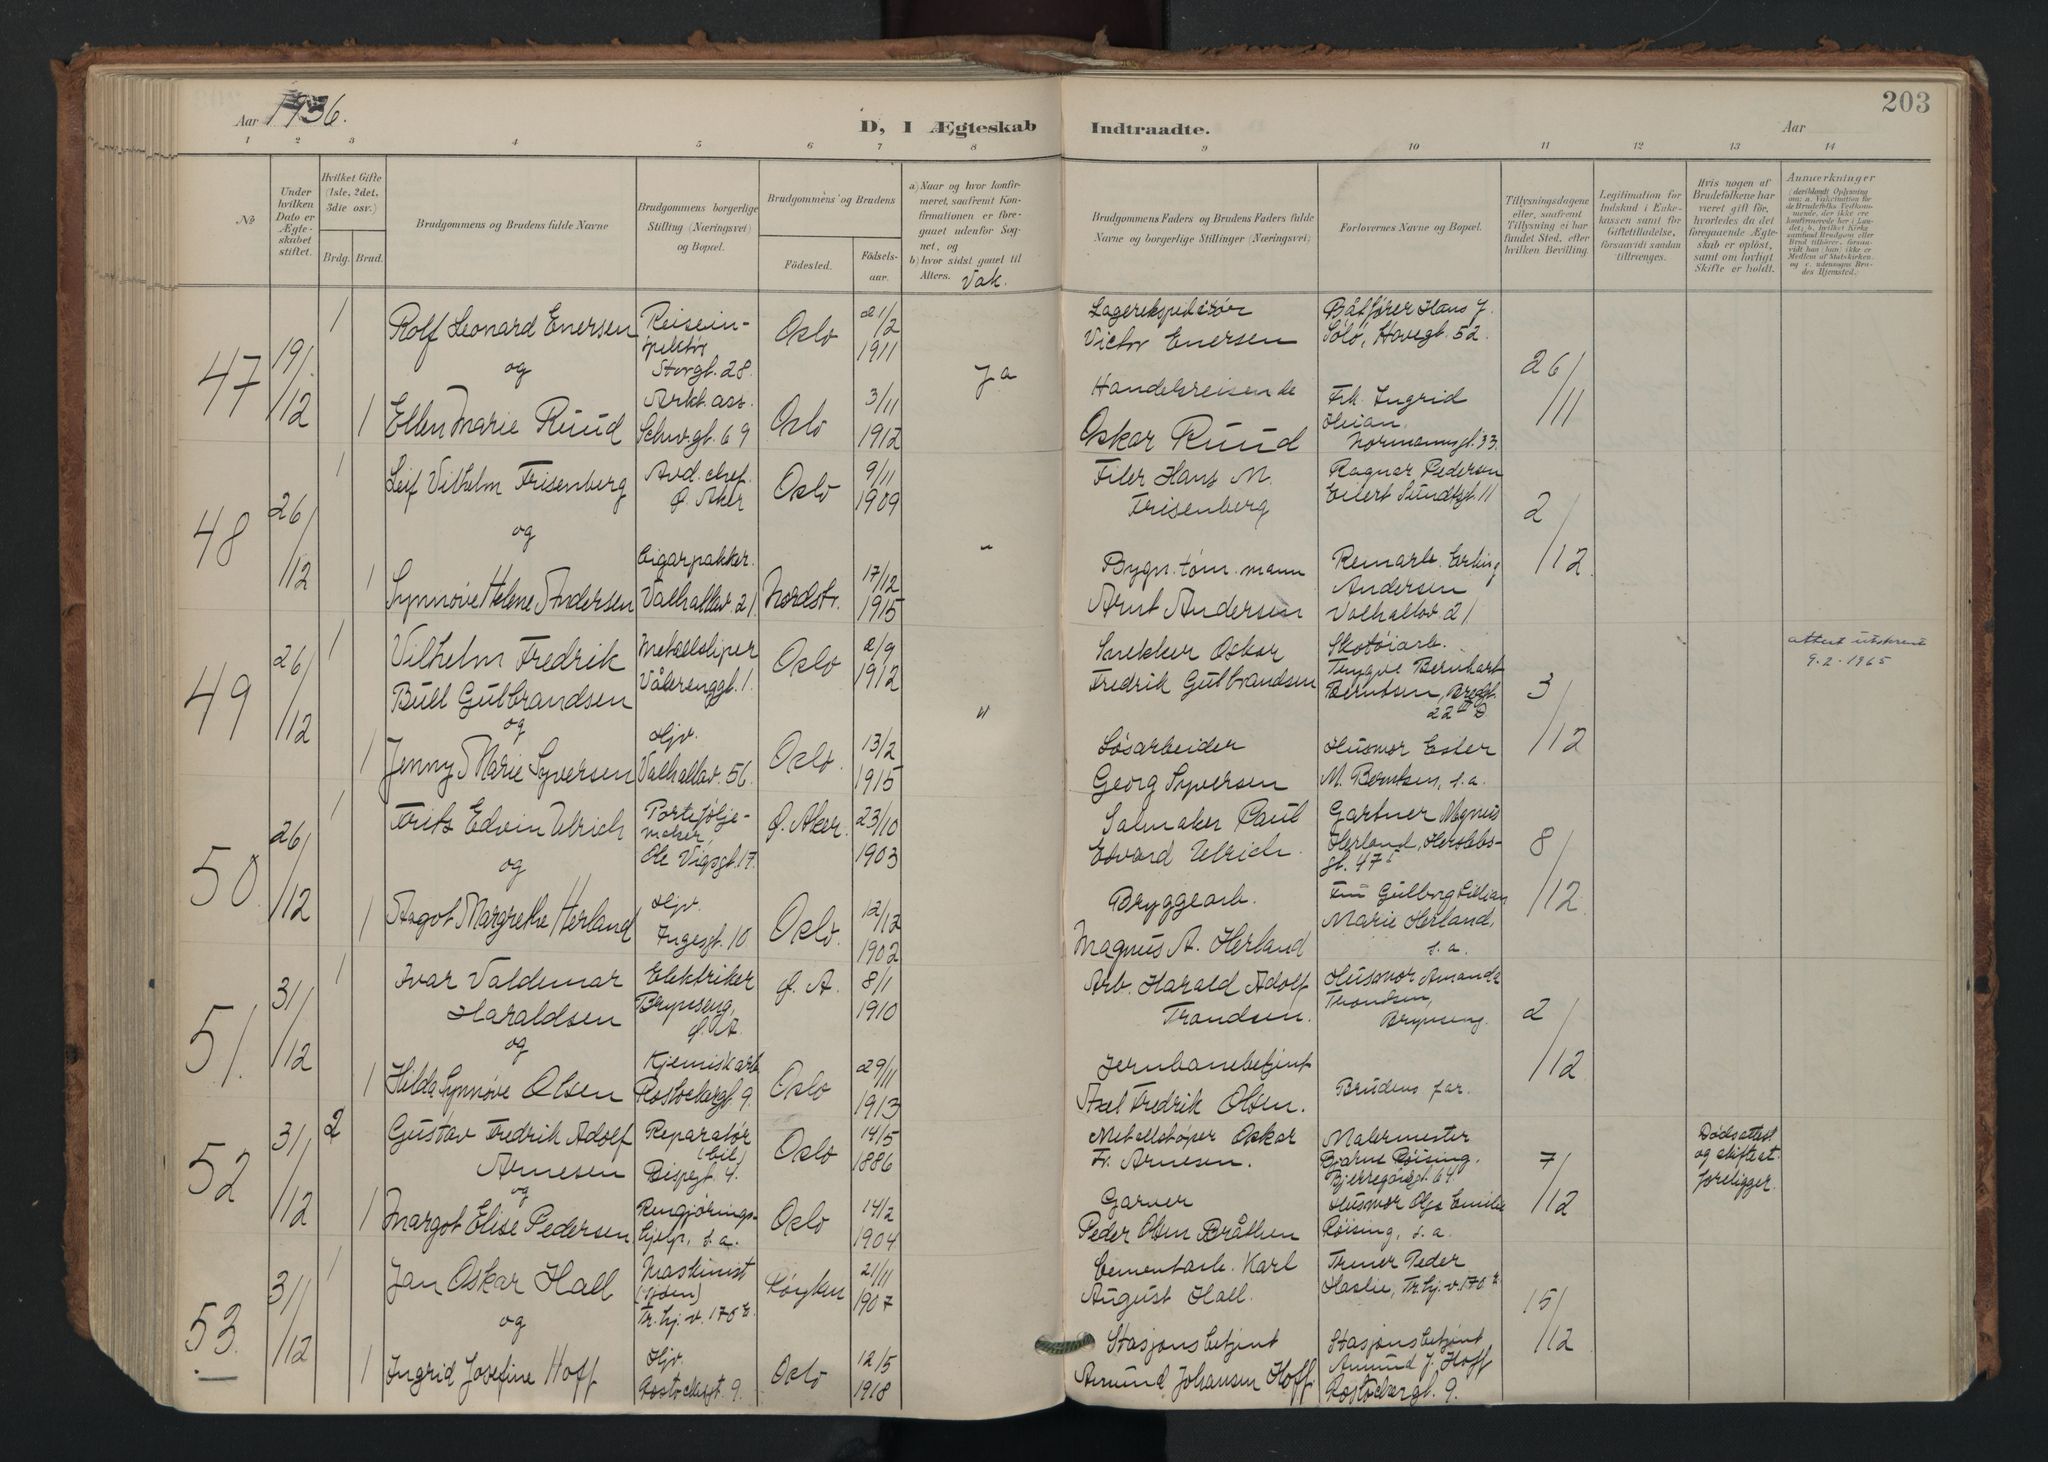 Aar 1936.
D, I Ægteskab Indtraadte.
203
Aar
1 2 3 4 5 6 7 8 9 10 11 12 13 14
No
Under hvilken Dato er Ægteskabet stiftet.
Hvilket Gifte (1ste, 2det, 3die osv.)
Brdg. Brud.
Brudgommens og Brudens fulde Navne
Brudgommens borgerlige Stilling (Næringsvei) og Bopæl.
Brudgommens og Brudens
Fødested. Fødselsaar.
a) Naar og hvor konfirmeret, saafremt Konfirmationen er foregaaet udenfor Sognet, og
b) hvor sidst gaaet til Alters. Vak.
Brudgommens Faders og Brudens Faders fulde Navne og borgerlige Stillinger (Næringsvei)
Forlovernes Navne og Bopæl.
Tillysningsdagene eller, saafremt Tillysning ei har fundet Sted, efter hvilken Bevilling.
Legitimation for Indskud i Enkekassen samt for Giftetilladelse, forsaavidt saadan tiltrænges.
Hvis nogen af Brudefolkene har været gift før, hvorledes da det foregaaende Ægteskab er opløst, samt om lovligt Skifte er holdt.
Anmærkninger
47 19/12 1 Rolf Leonard Enersen
Reiseinspektør Storgt. 28.
Oslo 21/2 1911
Lagerekspeditør Victor Enersen
Båtfører Hans J. Solø, Hovegt. 52.
og
Ja
26/11
1 Ellen Marie Ruud
Arkt. ass. Schw.gt. 69
Oslo 3/11 1912
Handelsreisende Oskar Ruud
Frk. Ingrid
Normannsgt. 33.
48 26/12 1 Leif Vilhelm Frisenberg
Avd. chef. Ø. Aker
Oslo 9/11 1909
Filer Hans M. Frisenberg
Ragnar Pedersen Eilert Sundtsgt. 11
og
"
2/12
1 Synnøve Helene Andersen
Cigarpakker. Valhallav. 21.
Nordstr. 17/12 1915
Bygn. tøm. mann Arnt Andersen
Remarb. Erling Andersen Valhallav 21
49 26/12 1 Vilhelm Fredrik Bull Gulbrandsen
Metallsliper Vålerenggt. 1.
Oslo 2/9 1912
Snekker Oskar Fredrik Gulbrandsen
Skotøiarb. Trygve Bernhart Berntsen, Bredgt. 22 II D
attest utskrevet 9.2.1965
og
"
3/12
1 Jenny Marie Syversen
Hjv. Valhallav. 56.
Oslo. 13/2 1915
Løsarbeider Georg Syversen
Husmor Ester M. Berntsen, s.a.
50. 26/12 1 Frits Edvin Ulrich
Porteføljemaker, Ole Vigsgt. 17.
Ø. Aker. 23/10 1903
Salmaker Paul Edvard Ulrich.
Gartner Magnus Herland, Herslebsgt. 47
og
8/12
1 Aagot Margrethe Herland
Hjv. Ingesgt. 10
Oslo. 12/12 1902
Bryggearb. Magnus A. Herland
Fru Gulborg Lillian Marie Herland, s.a.
51. 31/12 1 Ivar Valdemar Haraldsen
Elektriker Brynseng, Ø. A.
Ø. A. 8/1 1910
Arb. Harald Adolf Trondsen.
Husmor Amanda Trondsen, Brynseng.
og
2/12
1 Hilda Synnøve Olsen
Kjemisk arb. Rostockergt. 9.
Oslo 29/11 1913
Jernbanebetjent Axel Fredrik Olsen.
Brudens far.
52 31/12 2 Gustav Fredrik Adolf Arnesen
Reparatør (bil) Bispegt. 4.
Oslo 14/5 1886
Metallstøper Oskar Fr. Arnesen.
Malermester Bjarne Røising, Bjerregårdsgt. 64
7/12
Dødsattest og skifteat. foreligger.
og
1 Margot Elise Pedersen
Rengjøringshjelp, s.a.
Oslo 14/2 1904
Garver Peder Olsen Bråthen
Husmor Olga Emilie Røising, s.a.
53. 31/12 1 Jan Oskar Hall
Maskinist Tr.hj.v. 170
Røyken 21/11 1907
Cementarb. Karl August Hall.
Peder Haslie, Tr.hj.v. 170
og
15/12
1 Ingrid Josefine Hoff
Hjv. Rostockergt. 9.
Oslo 12/5 1918
Stasjonsbetjent Amund Johansen Hoff.
Stasjonsbetjent Amund J. Hoff Rostockergt. 9.